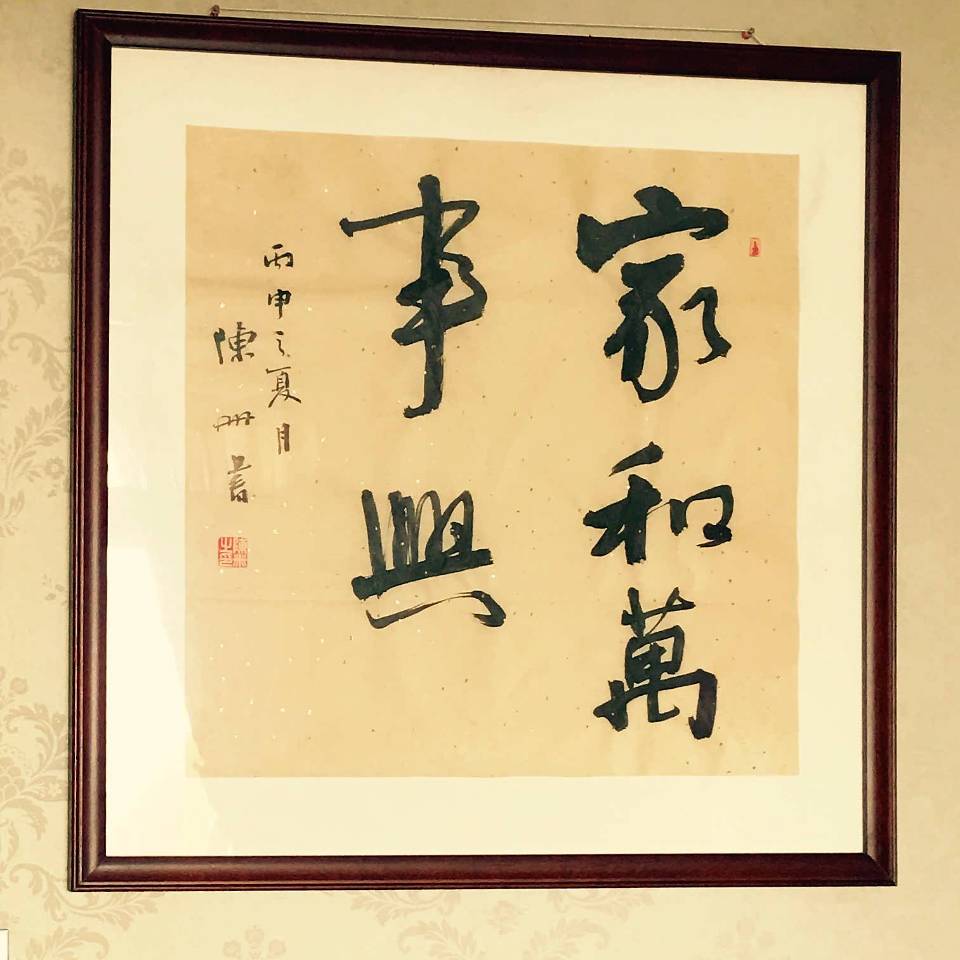 家和萬
事興
丙申之夏月
陳冊書